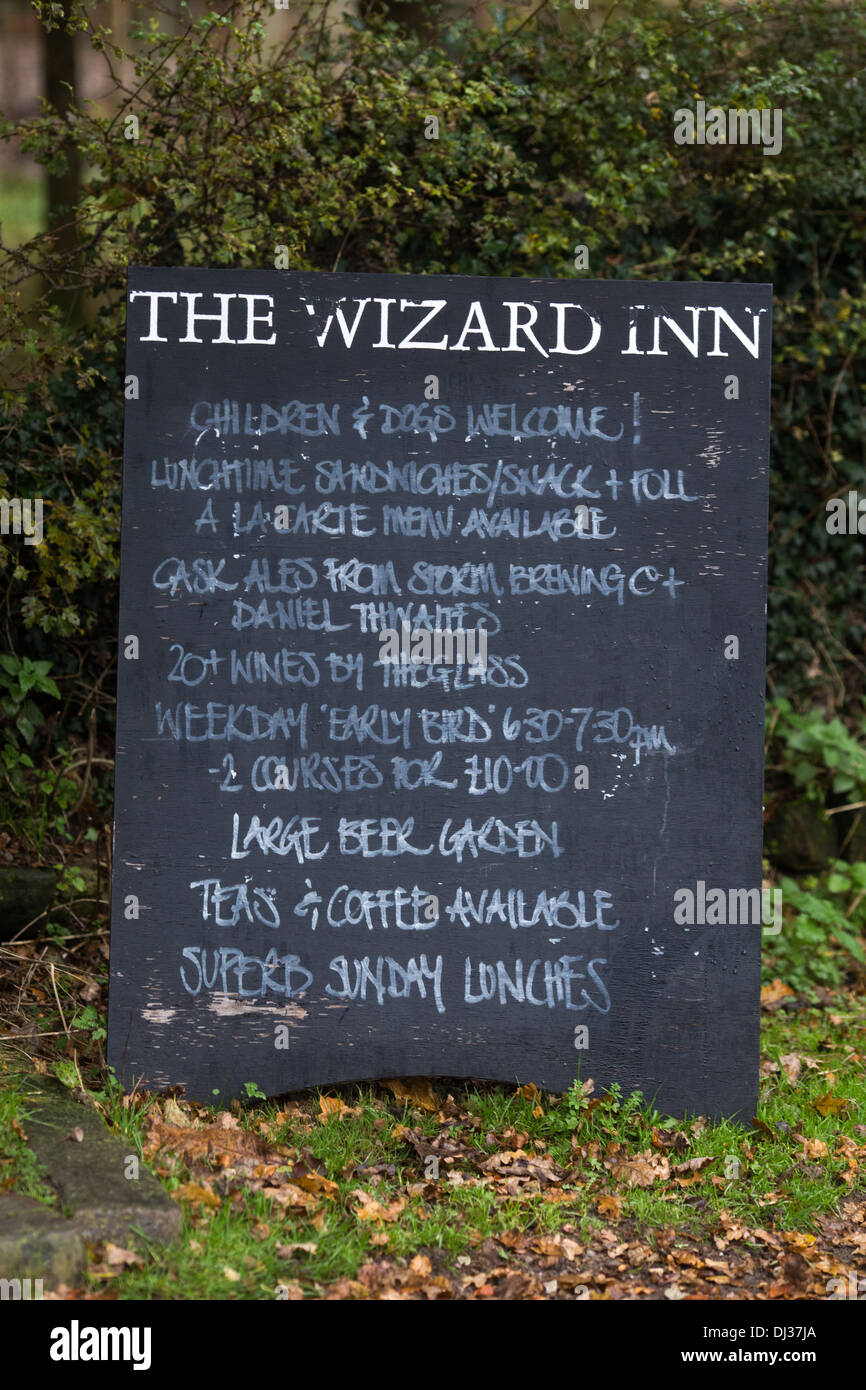 THE WIZARD INN
CHILDREN & DOGS WELCOME!
LUNCHTIME SANDWICHES/SNACK + FULL
A LA CARTE MENU AVAILABLE
CASK ALES FROM STORM BREWING Co +
DANIEL THWAITES
20+ WINES BY THE GLASS
WEEKDAY 'EARLY BIRD' 6·30-7·30pm
-2 COURSES FOR £10-00
LARGE BEER GARDEN
TEAS & COFFEE AVAILABLE
SUPERB SUNDAY LUNCHES
alamy
Image ID: DJ37JA
www.alamy.com